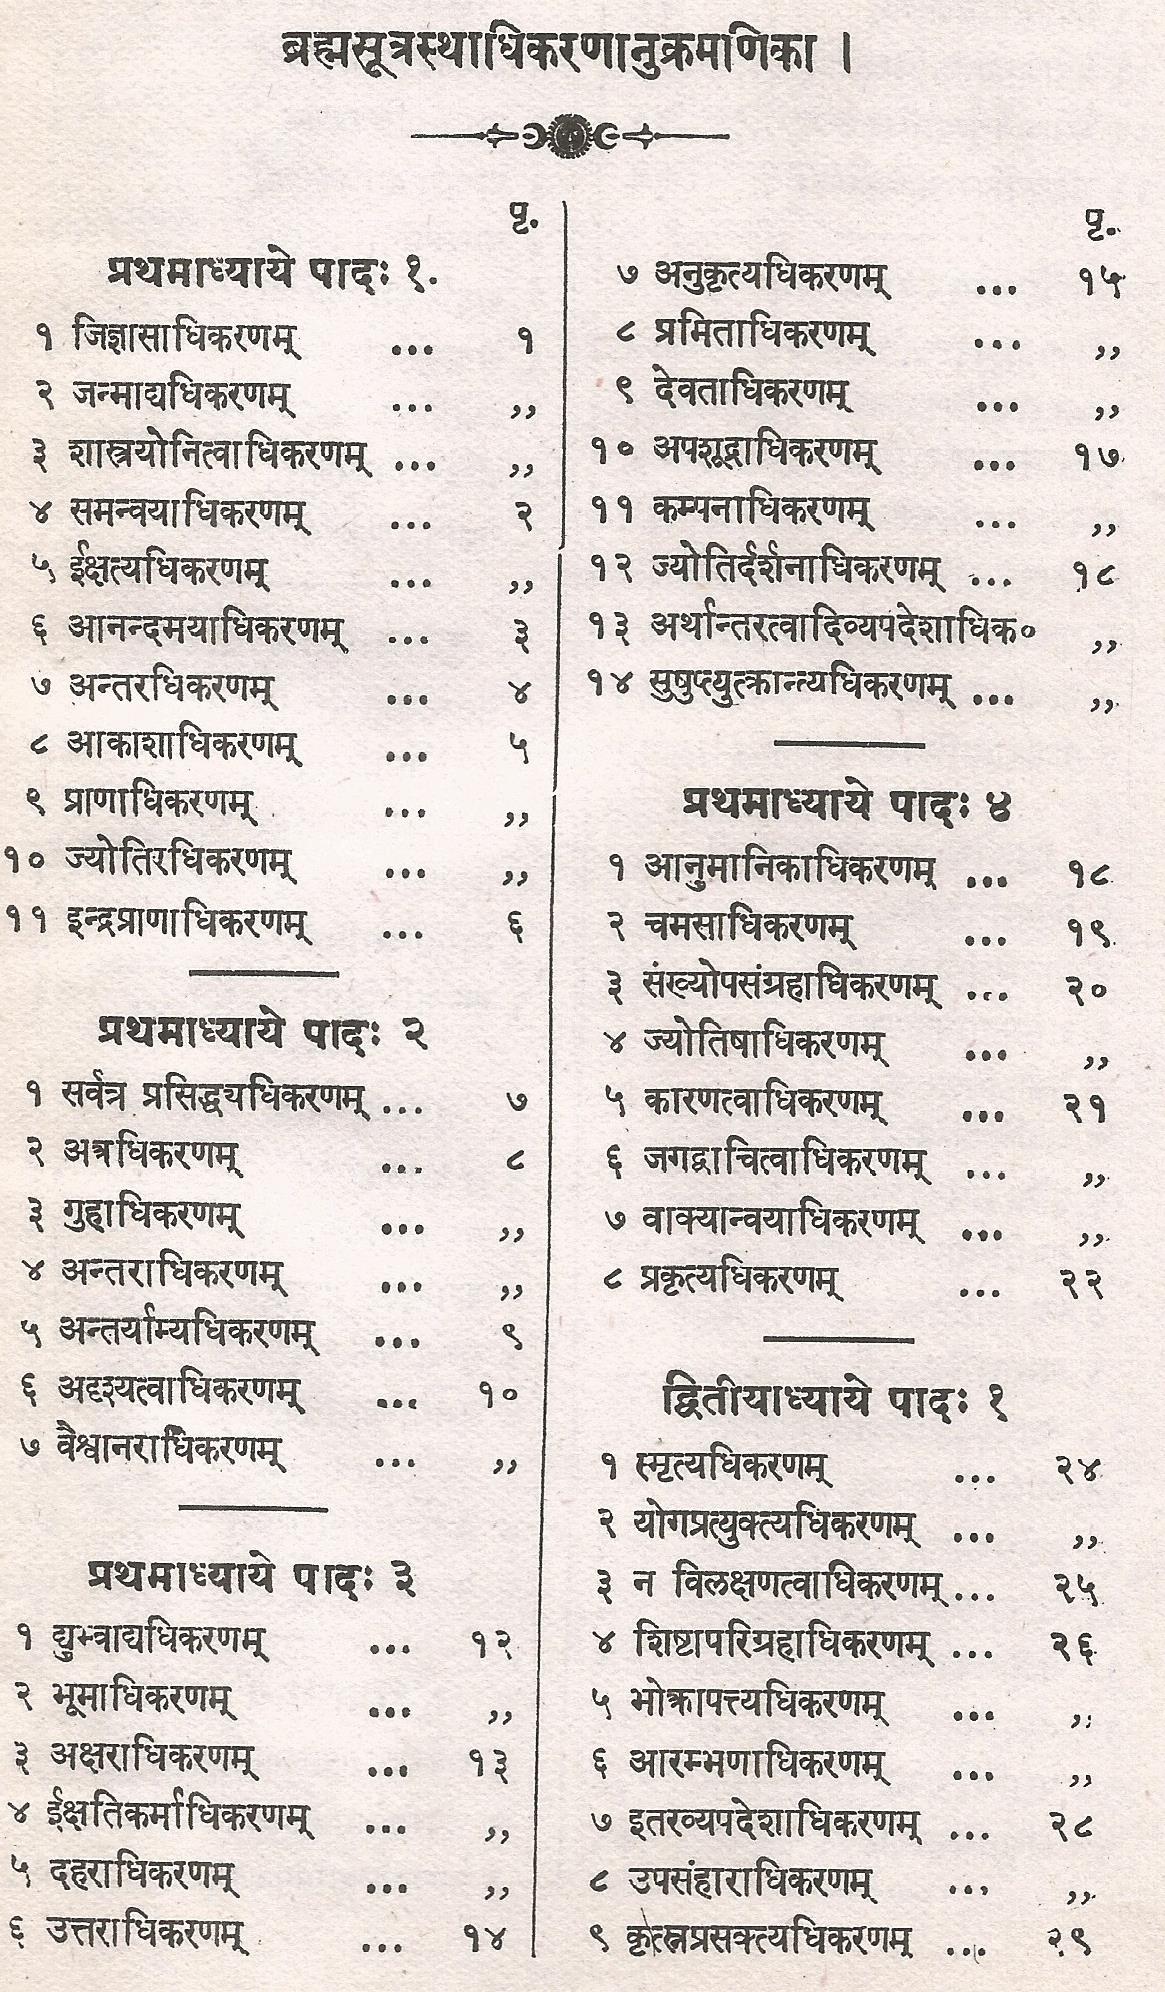 ब्रह्मसूत्रस्थाधिकरणानुक्रमणिका ।
पृ.
प्रथमाध्याये पादः १.
१ जिज्ञासाधिकरणम् ... १
२ जन्माद्यधिकरणम् ... ,,
३ शास्त्रयोनित्वाधिकरणम् ... ,,
४ समन्वयाधिकरणम् ... २
५ ईक्षत्यधिकरणम् ... ,,
६ आनन्दमयाधिकरणम् ... ३
७ अन्तरधिकरणम् ... ४
८ आकाशाधिकरणम् ... ५
९ प्राणाधिकरणम् ... ,,
१० ज्योतिरधिकरणम् ... ,,
११ इन्द्रप्राणाधिकरणम् ... ६
प्रथमाध्याये पादः २
१ सर्वत्र प्रसिद्ध्यधिकरणम् ... ७
२ अत्रधिकरणम् ... ८
३ गुहाधिकरणम् ... ,,
४ अन्तराधिकरणम् ... ,,
५ अन्तर्याम्यधिकरणम् ... ९
६ अदृश्यत्वाधिकरणम् ... १०
७ वैश्वानराधिकरणम् ... ,,
प्रथमाध्याये पादः ३
१ द्युभ्वाद्यधिकरणम् ... १२
२ भूमाधिकरणम् ... ,,
३ अक्षराधिकरणम् ... १३
४ ईक्षतिकर्माधिकरणम् ... ,,
५ दहराधिकरणम् ... ,,
६ उत्तराधिकरणम् ... १४
पृ.
७ अनुकृत्यधिकरणम् ... १५
८ प्रमिताधिकरणम् ... ,,
९ देवताधिकरणम् ... ,,
१० अपशूद्राधिकरणम् ... १७
११ कम्पनाधिकरणम् ... ,,
१२ ज्योतिर्दर्शनाधिकरणम् ... १८
१३ अर्थान्तरत्वादिव्यपदेशाधिक० ,,
१४ सुषुप्त्युत्क्रान्त्यधिकरणम् ... ,,
प्रथमाध्याये पादः ४
१ आनुमानिकाधिकरणम् ... १८
२ चमसाधिकरणम् ... १९
३ संख्योपसंग्रहाधिकरणम् ... २०
४ ज्योतिषाधिकरणम् ... ,,
५ कारणत्वाधिकरणम् ... २१
६ जगद्वाचित्वाधिकरणम् ... ,,
७ वाक्यान्वयाधिकरणम् ... ,,
८ प्रकृत्यधिकरणम् ... २२
द्वितीयाध्याये पादः १
१ स्मृत्यधिकरणम् ... २४
२ योगप्रत्युक्त्यधिकरणम् ... ,,
३ न विलक्षणत्वाधिकरणम् ... २५
४ शिष्टापरिग्रहाधिकरणम् ... २६
५ भोक्त्रापत्त्यधिकरणम् ... ,,
६ आरम्भणाधिकरणम् ... ,,
७ इतरव्यपदेशाधिकरणम् ... २८
८ उपसंहाराधिकरणम् ... ,,
९ कृत्स्नप्रसक्त्यधिकरणम् ... २९